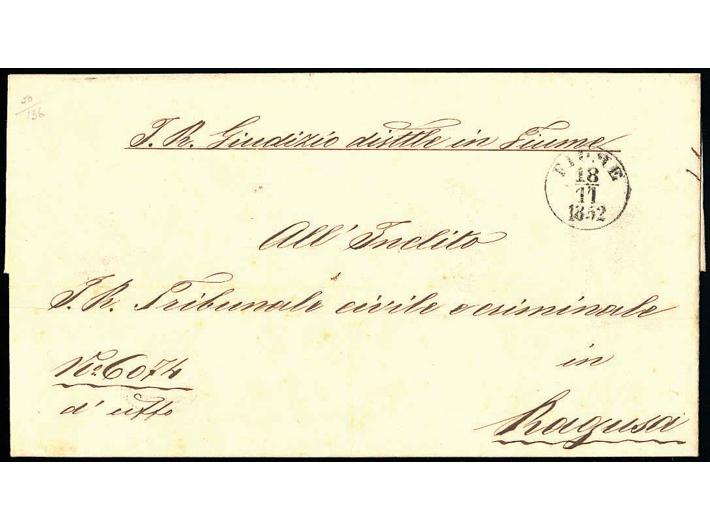 50
136
I. R. Giudizio disttle in Fiume
FIUME
18
11
1852
All' Inclito
I. R. Tribunale civile e criminale
in
Ragusa
No 6074
d' uffo